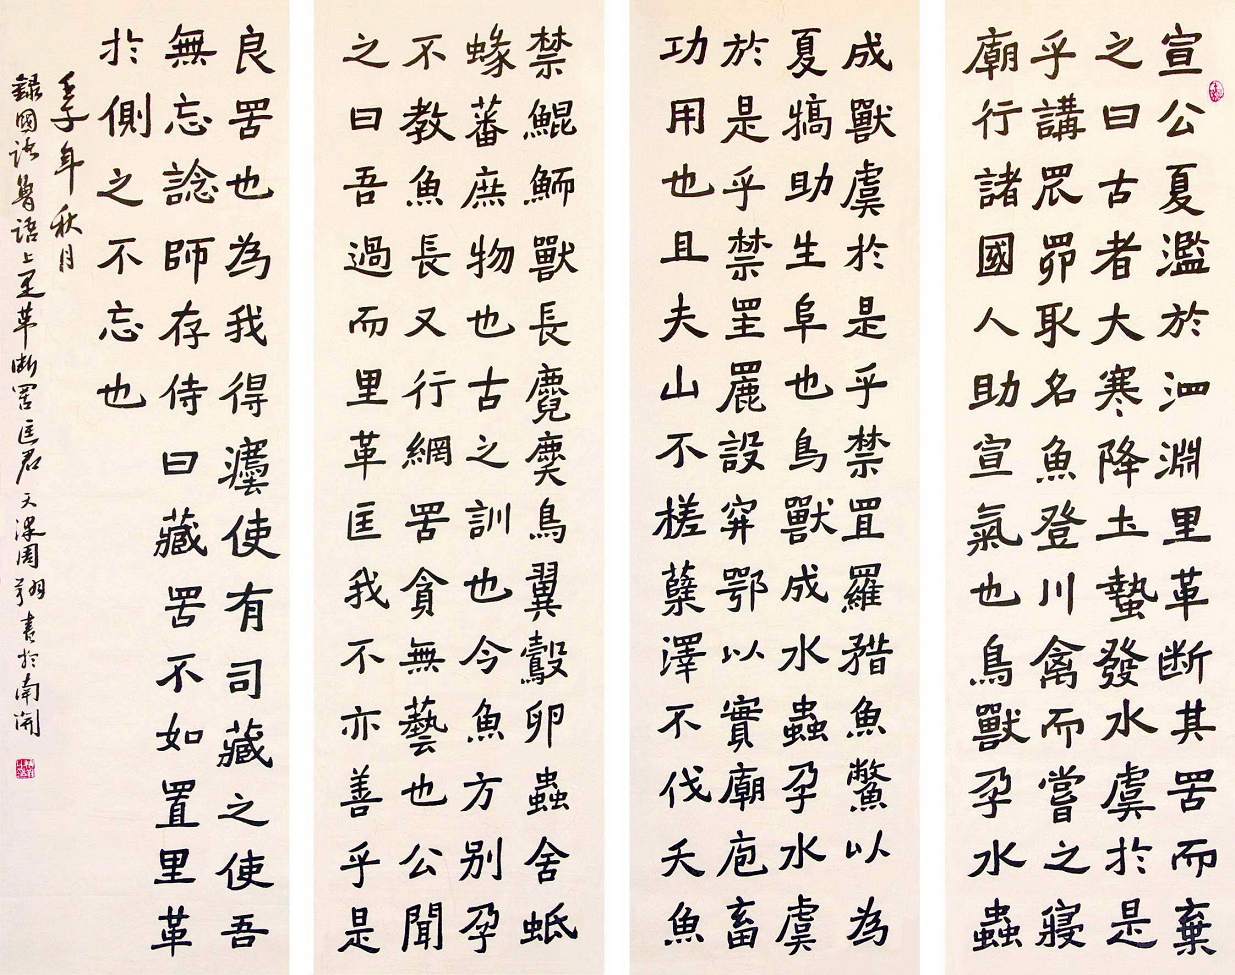 宣公夏濫於泗淵里革断其罟而棄
之曰古者大寒降土蟄發水虞於是
乎講罛罶取名魚登川禽而嘗之寢
廟行諸國人助宣氣也鳥獸孕水蟲
成獸虞於是乎禁罝羅矠魚鱉以為
夏犒助生阜也鳥獸成水蟲孕水虞
於是乎禁罜䍡設穽鄂以實廟庖畜
功用也且夫山不槎蘖澤不伐夭魚
禁鯤鮞獸長麑䴠鳥翼鷇卵蟲舍蚳
蝝蕃庶物也古之訓也今魚方别孕
不教魚長又行網罟貪無藝也公聞
之曰吾過而里革匡我不亦善乎是
良罟也為我得灋使有司藏之使吾
無忘諗師存侍曰藏罟不如置里革
於側之不忘也
年秋月
錄國語魯語上里革断罟匡君天津周翔書於南開